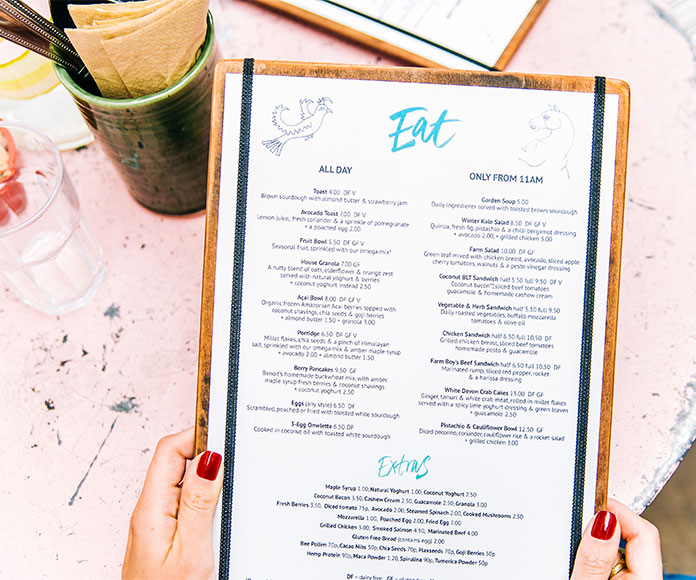 Eat
ALL DAY
Toast 4.00 DF V
Brown sourdough with almond butter & strawberry jam
Avocado Toast 7.00 DF V
Lemon juice, fresh coriander & a sprinkle of pomegranate
+ a poached egg 2.00
Fruit Bowl 5.50 DF GF V
Seasonal fruit, sprinkled with our omega mix*
House Granola 7.00 GF
A nutty blend of oats, elderflower & orange zest
served with natural yoghurt & berries
+ coconut yoghurt instead 2.50
Açai Bowl 8.00 DF GF V
Organic frozen Amazonian Açai berries topped with
coconut shavings, chia seeds & goji berries
+ almond butter 1.50 + granola 3.00
Porridge 6.50 DF GF V
Millet flakes, chia seeds & a pinch of Himalayan
salt, sprinkled with our omega mix & amber maple syrup
+ avocado 2.00 + almond butter 1.50
Berry Pancakes 9.50 GF
Benoit's homemade buckwheat mix, with amber
maple syrup fresh berries & coconut shavings
+ coconut yoghurt 2.50
Eggs (any style) 6.50 DF
Scrambled, poached or fried with toasted white sourdough
3-Egg Omelette 6.50 DF
Cooked in coconut oil with toasted white sourdough
ONLY FROM 11AM
Garden Soup 5.00
Daily ingredients served with toasted brown sourdough
Winter Kale Salad 8.50 DF GF V
Quinoa, fresh fig, pistachio & a chilli bergamot dressing
+ avocado 2.00, + grilled chicken 3.00
Farm Salad 10.00 DF GF
Green leaf mixed with chicken breast, avocado, sliced apple
cherry tomatoes, walnuts & a pesto vinegar dressing
Coconut BLT Sandwich half 5.50 full 9.50 DF
Coconut bacon**, sliced beef tomatoes
guacamole & homemade cashew cream
Vegetable & Herb Sandwich half 5.50 full 9.50
Daily roasted vegetables, buffalo mozzarella
tomatoes & olive oil
Chicken Sandwich half 6.50 full 10.50 DF
Grilled chicken breast, sliced beef tomatoes
homemade pesto & guacamole
Farm Boy's Beef Sandwich half 6.50 full 10.50 DF
Marinated rump, sliced red pepper, rocket
& a harissa dressing
White Devon Crab Cakes 13.00 DF GF
Ginger, tamari & white crab meat, rolled in millet flakes
served with a spicy lime yoghurt dressing & green leaves
+ guacamole 2.50
Pistachio & Cauliflower Bowl 12.50 GF
Diced pecorino, coriander, cauliflower rice & a rocket salad
+ grilled chicken 3.00
Extras
Maple Syrup 1.00, Natural Yoghurt 1.00, Coconut Yoghurt 2.50
Coconut Bacon 3.50, Cashew Cream 2.50, Guacamole 2.50, Granola 3.00
Fresh Berries 3.50, Diced tomato 75p, Avocado 2.00, Steamed Spinach 2.00, Cooked Mushrooms 2.50
Mozzarella 1.00, Poached Egg 2.00, Fried Egg 2.00
Grilled Chicken 3.00, Smoked Salmon 4.50, Marinated Beef 4.00
Gluten Free Bread (contains egg) 2.00
Bee Pollen 70p, Cacao Nibs 50p, Chia Seeds 70p, Flaxseeds 70p, Goji Berries 50p
Hemp Protein 90p, Maca Powder 1.20, Spirulina 90p, Tumerica Powder 50p
DF = dairy free